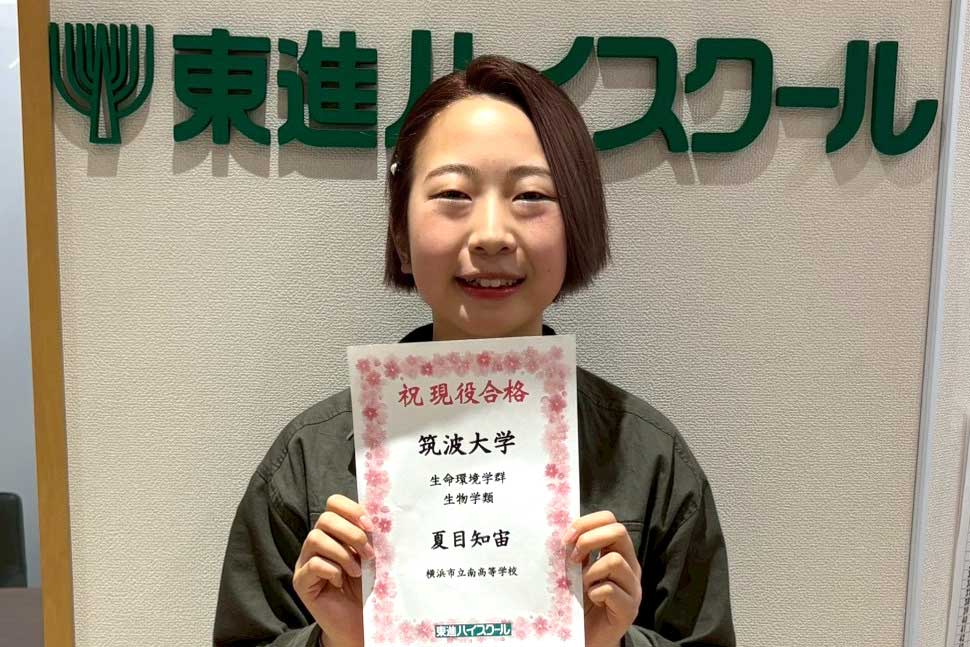 東進ハイスクール
祝 現役合格
筑波大学
生命環境学群
生物学類
夏目知宙
横浜市立南高等学校
東進ハイスクール